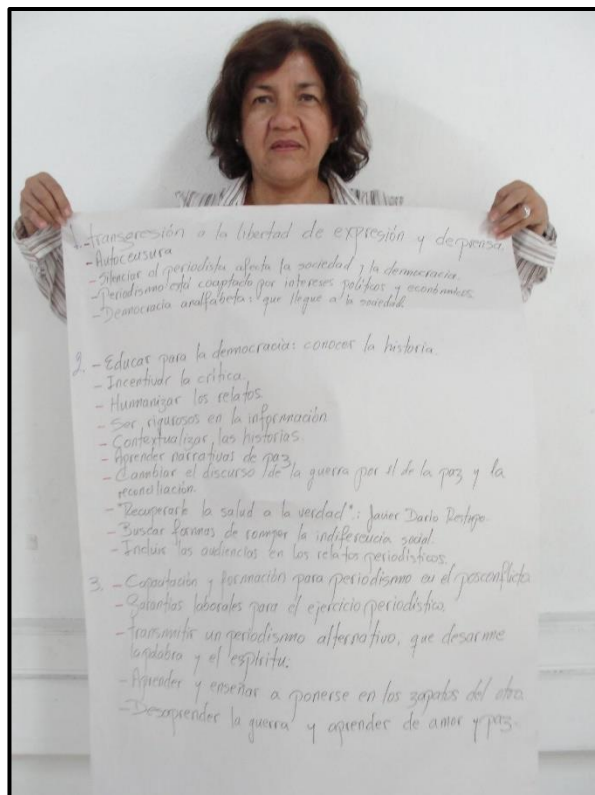 1. - Transgresión a la libertad de expresión y de prensa
- Autocensura
- Silenciar al periodista afecta la sociedad y la democracia.
- Periodismo está cooptado por intereses políticos y económicos
- Democracia analfabeta: que llegue a la sociedad.
2. - Educar para la democracia: conocer la historia.
- Incentivar la crítica.
- Humanizar los relatos
- Ser rigurosos en la información.
- Contextualizar las historias.
- Aprender narrativas de paz
- Cambiar el discurso de la guerra por el de la paz y la
reconciliación.
- "Recuperarle la salud a la verdad": Javier Darío Restrepo
- Buscar formas de romper la indiferencia social.
- Incluir las audiencias en los relatos periodísticos.
3. - Capacitación y formación para periodismo en el posconflicto
- Garantías laborales para el ejercicio periodístico
- Transmitir un periodismo alternativo, que desarme
la palabra y el espíritu.
- Aprender y enseñar a ponerse en los zapatos del otro
- Desaprender la guerra y aprender de amor y paz.